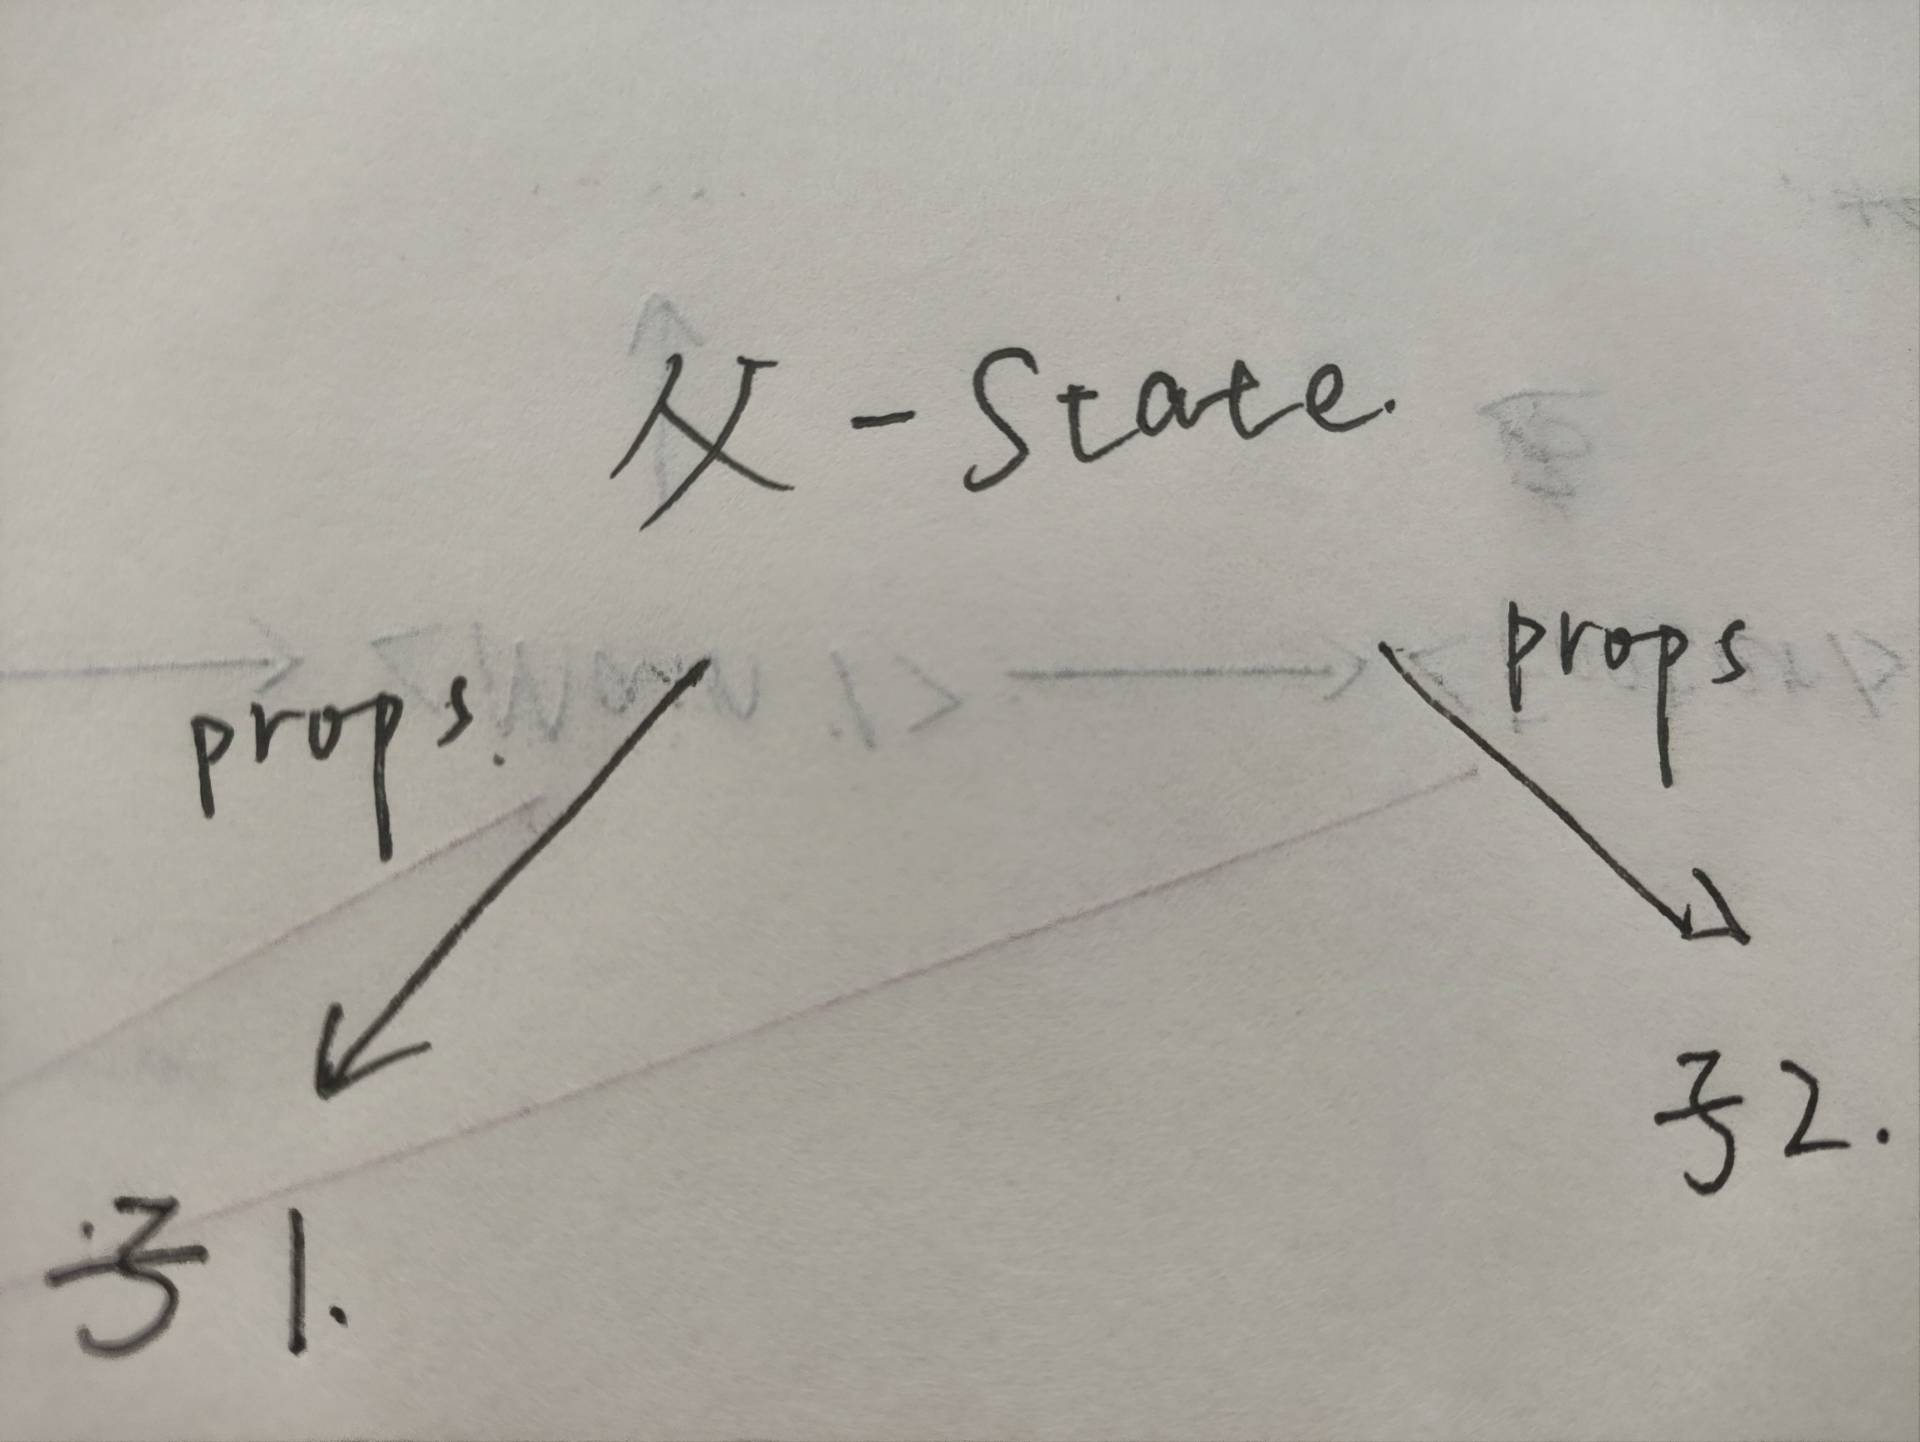 父-State.
props.
props
子2.
子1.